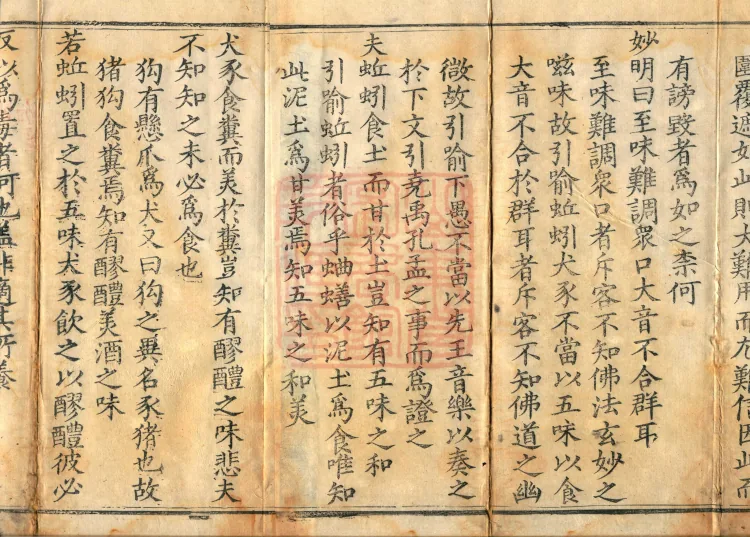 覆適如此則大難用而尤難信因此而
有謗毀者爲如之柰何
妙明曰至味難調衆口大音不合群耳
至味難調衆口者斥客不知佛法玄妙之
嗞味故引喻蚯蚓犬豕不當以五味以食
大音不合於群耳者斥客不知佛道之幽
微故引喻下愚不當以先王音樂以奏之
於下文引堯禹孔孟之事而爲證之
夫蚯蚓食土而甘於土豈知有五味之和
引喻蚯蚓者俗乎蛐蟮以泥土爲食唯知
此泥土爲甘美焉知五味之和美
犬豕食糞而美於糞豈知有醪醴之味悲夫
不知知之未必爲食也
狗有懸爪爲犬又曰狗之異名豕猪也故
猪狗食糞焉知有醪醴美酒之味
若蚯蚓置之於五味犬豕飲之以醪醴彼必
反以爲毒者何也盖非適其所養